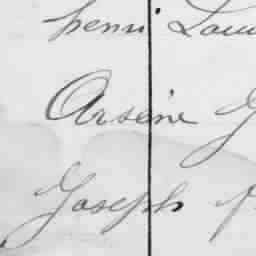 henri
Arsène
Joseph